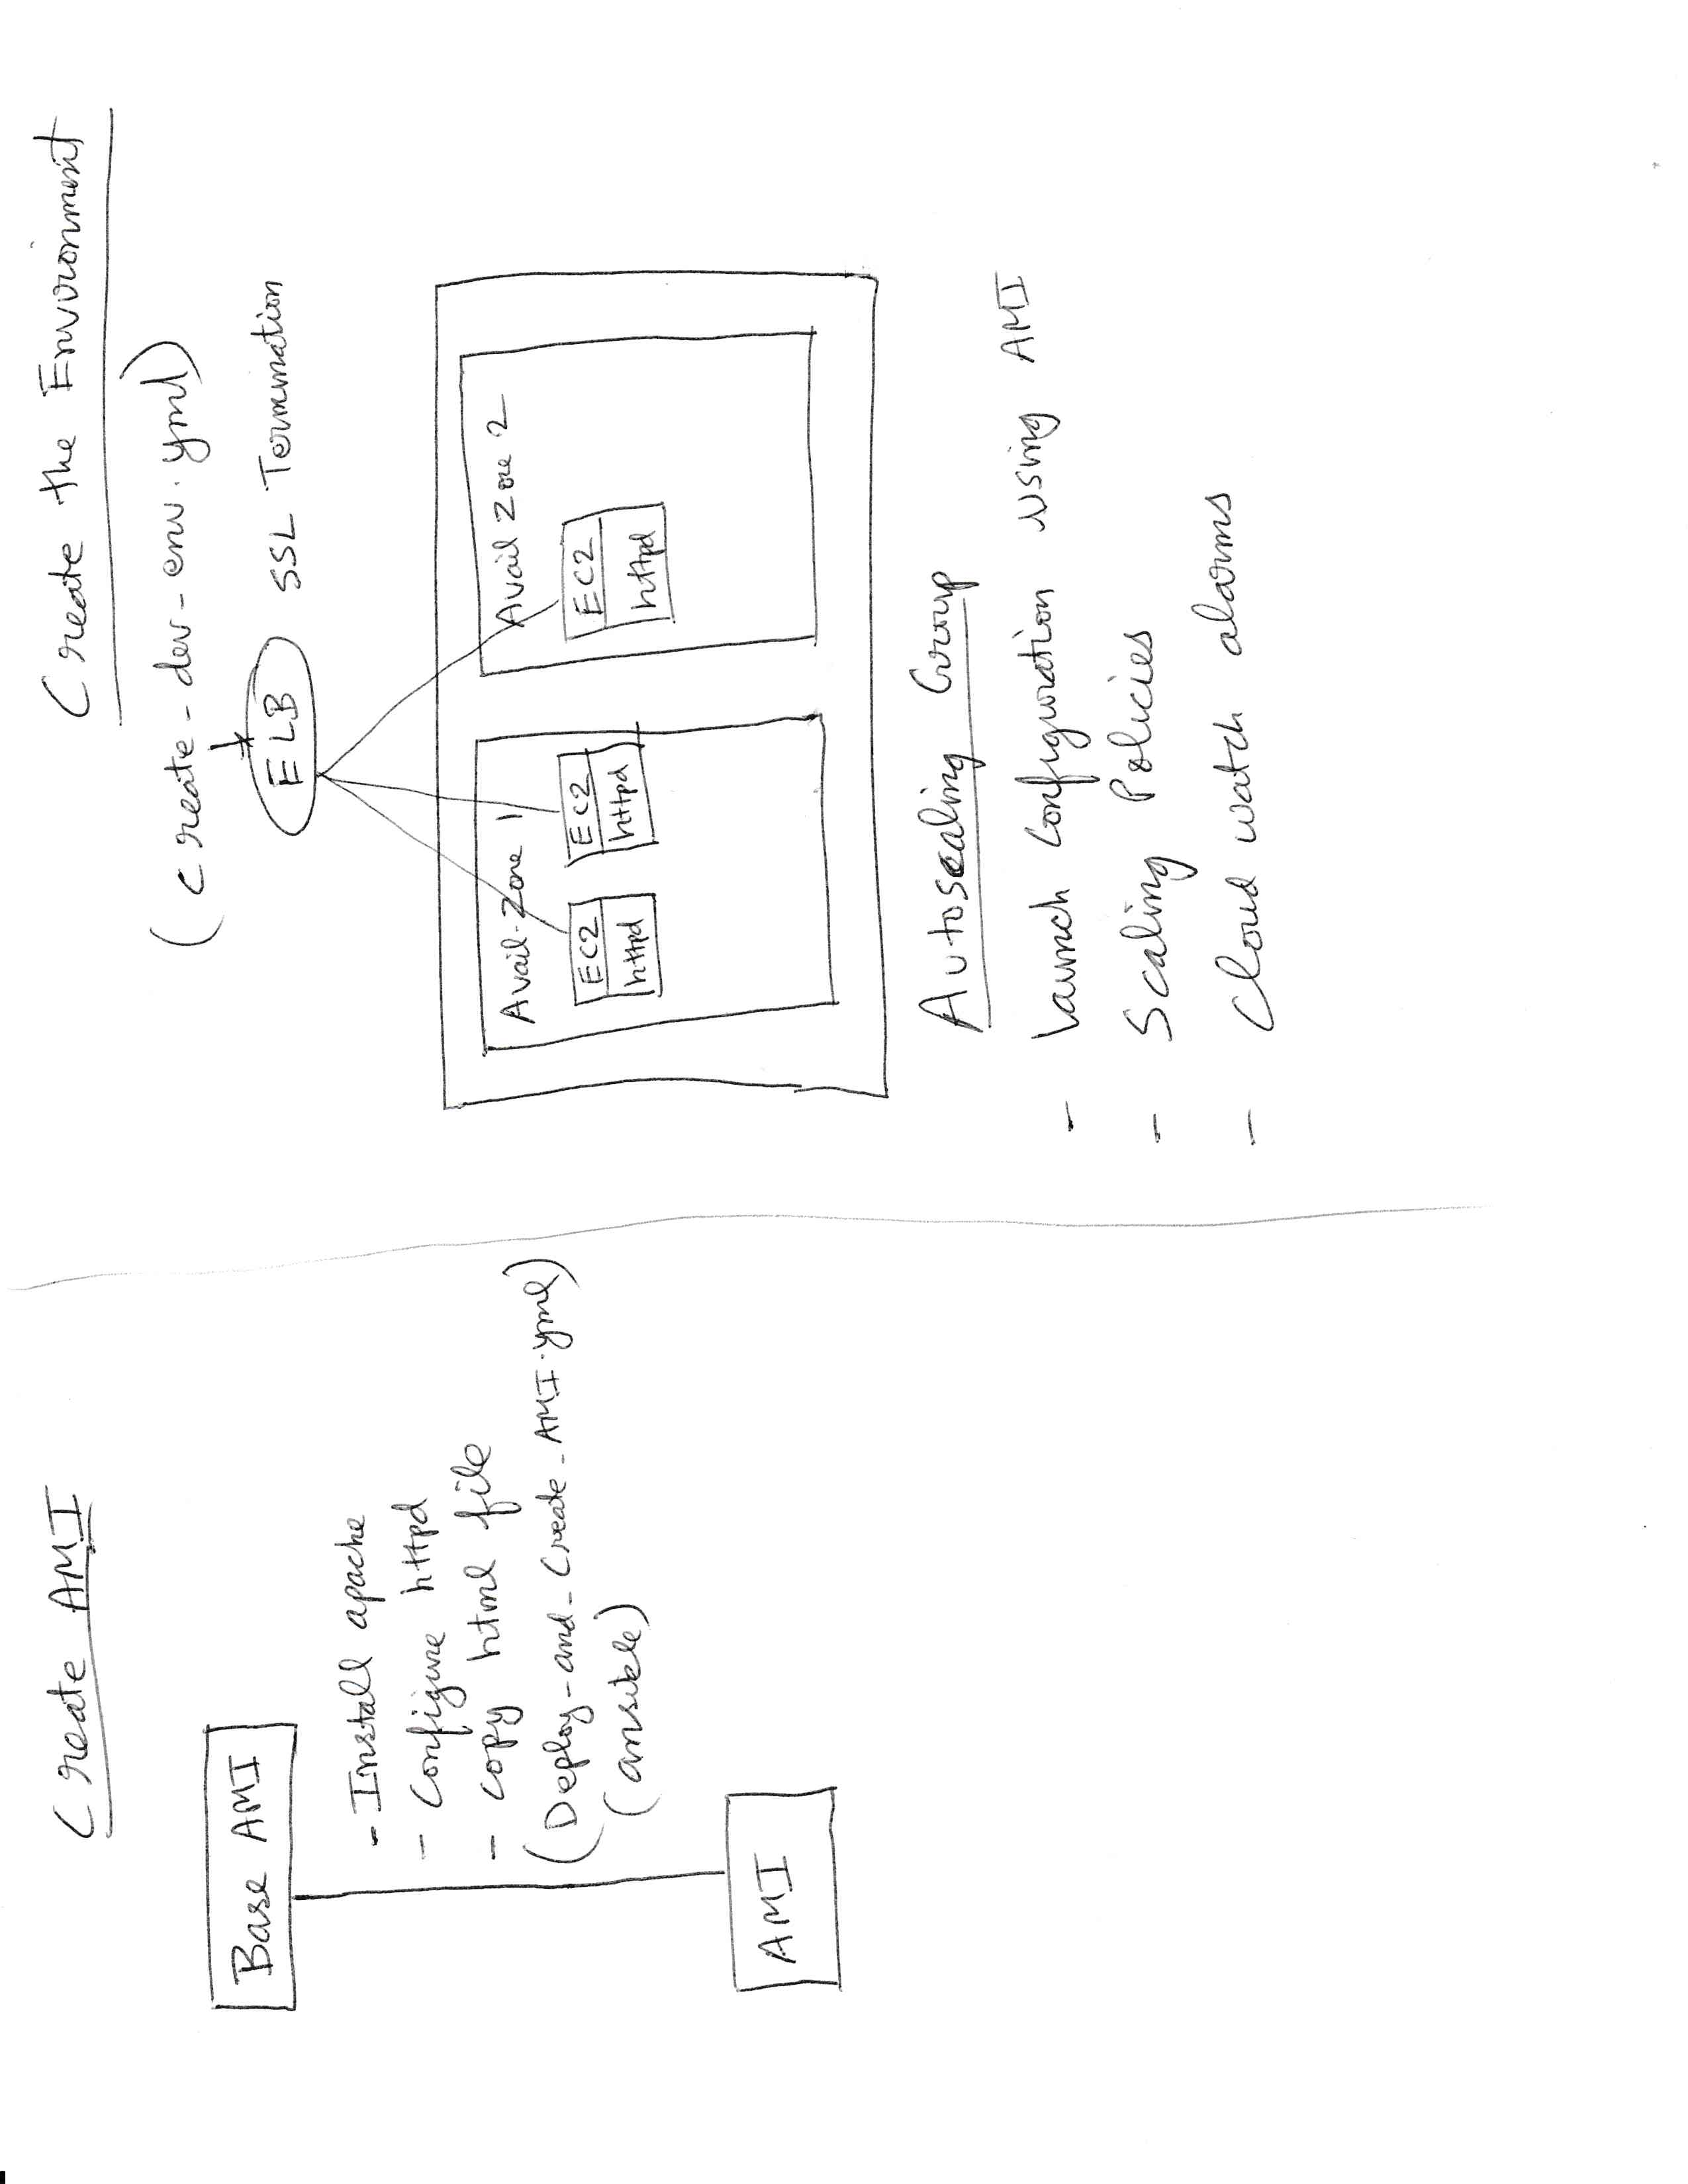 Create AMI
Base AMI
- Install apache
- Configure httpd
- copy html file
(Deploy-and-Create-AMI.yml)
(ansible)
AMI
Create the Environment
(create-dev-env.yml)
ELB SSL Termination
Avail-Zone 1
EC2
httpd
EC2
httpd
Avail Zone 2
EC2
httpd
Autoscaling Group
- Launch Configuration using AMI
- Scaling Policies
- Cloud watch alarms